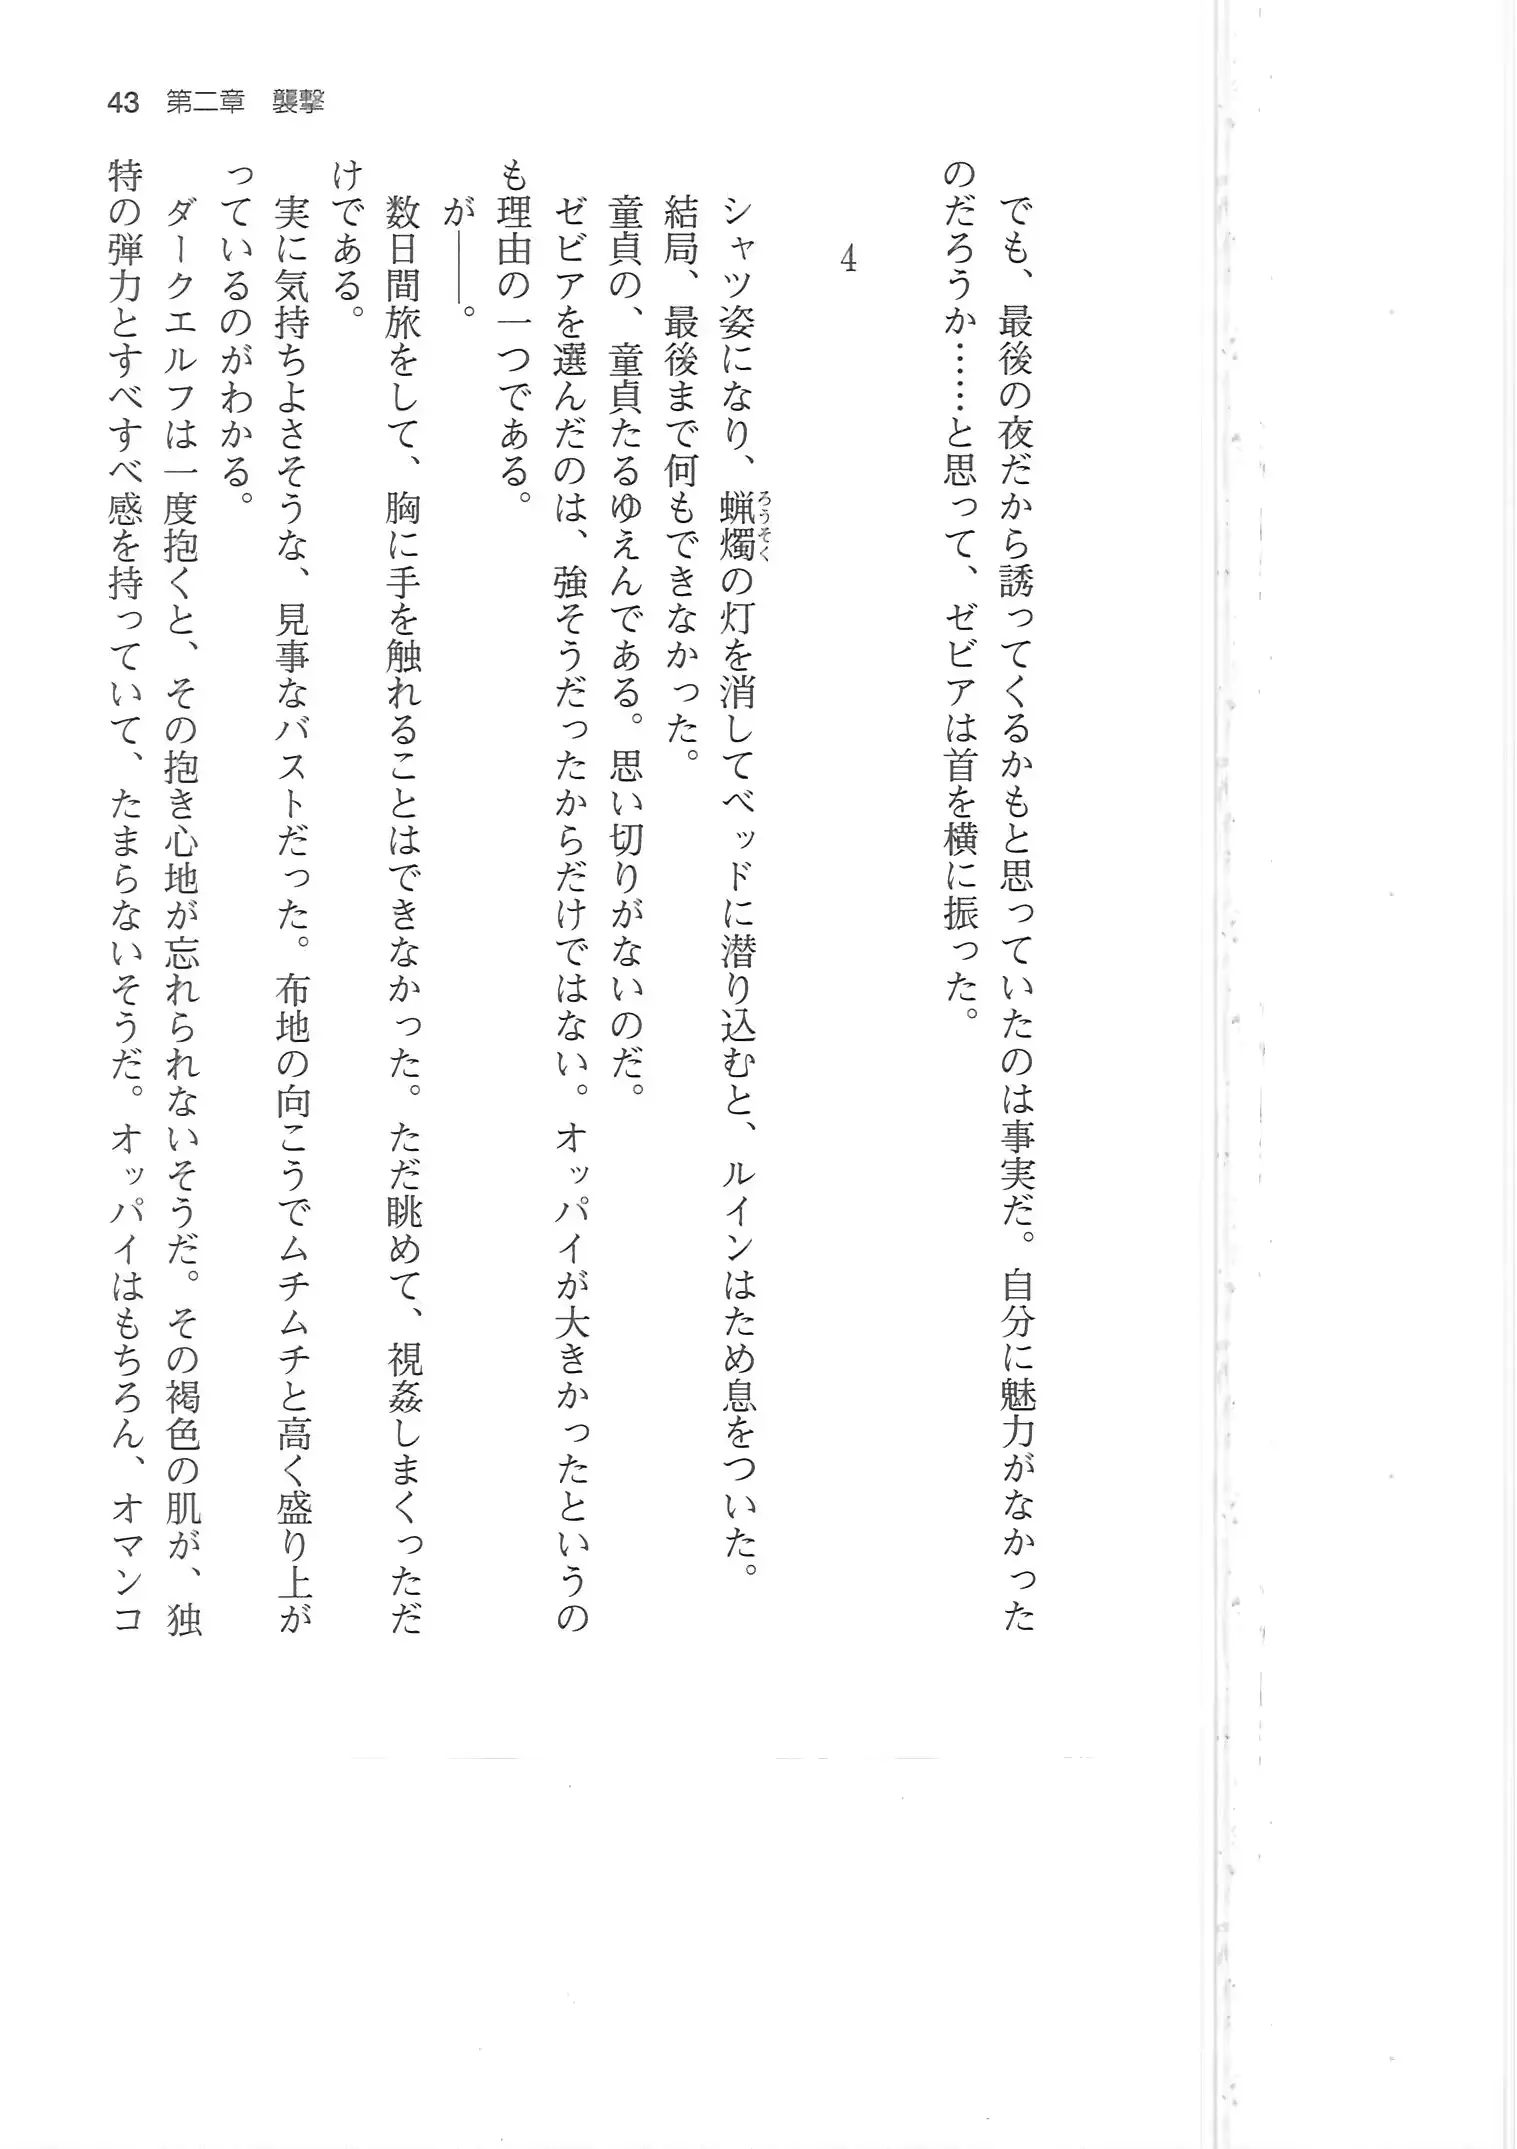 43 第二章 襲撃
でも、最後の夜だから誘ってくるかもと思っていたのは事実だ。自分に魅力がなかった
のだろうか……と思って、ゼビアは首を横に振った。
4
シャツ姿になり、蝋燭の灯を消してベッドに潜り込むと、ルインはため息をついた。
結局、最後まで何もできなかった。
童貞の、童貞たるゆえんである。思い切りがないのだ。
ゼビアを選んだのは、強そうだったからだけではない。オッパイが大きかったというの
も理由の一つである。
が――。
数日間旅をして、胸に手を触れることはできなかった。ただ眺めて、視姦しまくっただ
けである。
実に気持ちよさそうな、見事なバストだった。布地の向こうでムチムチと高く盛り上が
っているのがわかる。
ダークエルフは一度抱くと、その抱き心地が忘れられないそうだ。その褐色の肌が、独
特の弾力とすべすべ感を持っていて、たまらないそうだ。オッパイはもちろん、オマンコ